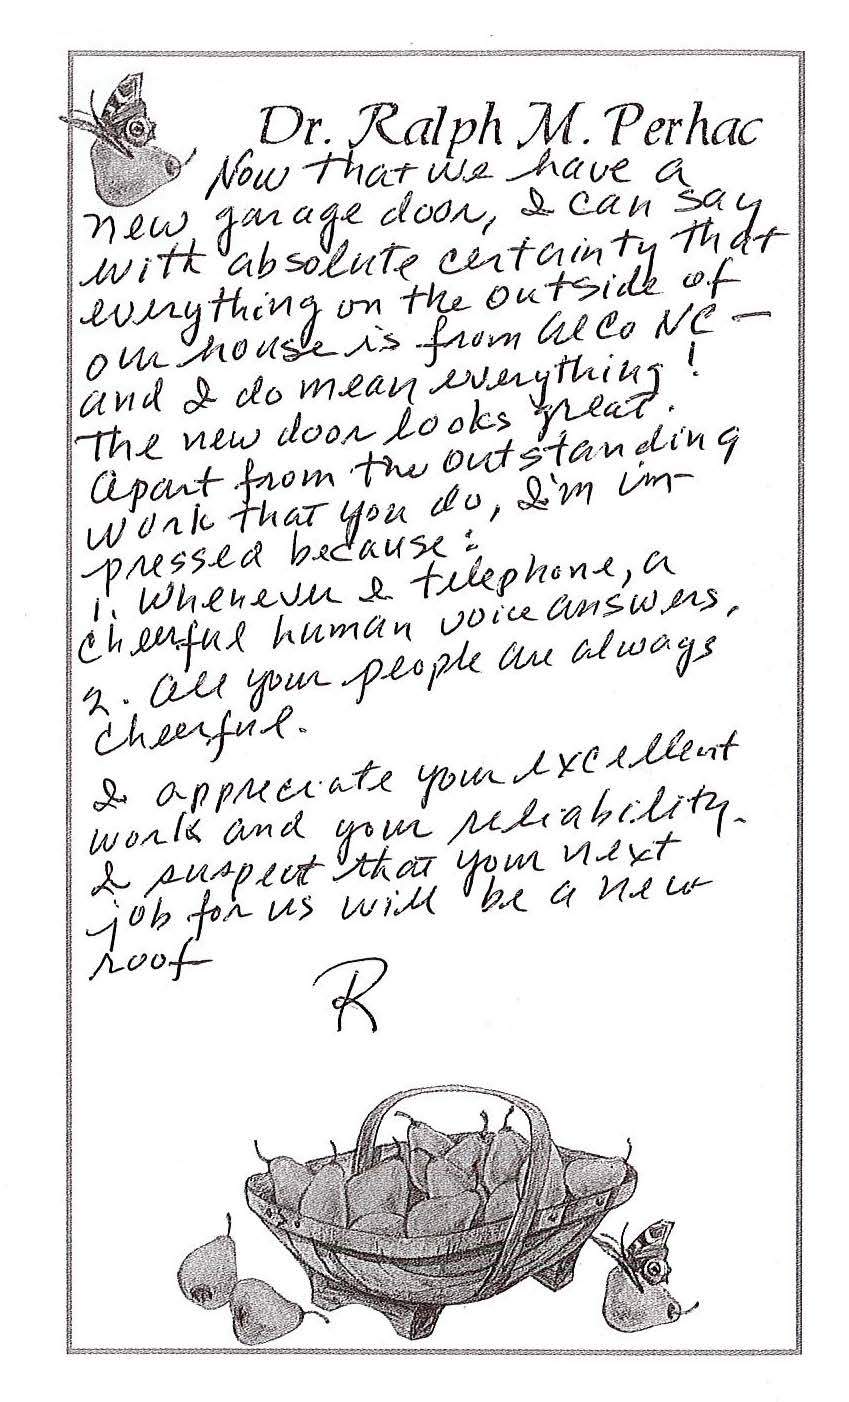 Dr. Ralph M. Perhac
Now that we have a
new garage door, I can say
with absolute certainty that
everything on the outside of
our house is from AlCo NC —
and I do mean everything!
The new door looks great.
Apart from the outstanding
work that you do, I'm im-
pressed because:
1. Whenever I telephone, a
cheerful human voice answers,
2. All your people are always
cheerful.
I appreciate your excellent
work and your reliability.
I suspect that your next
job for us will be a new
roof
R